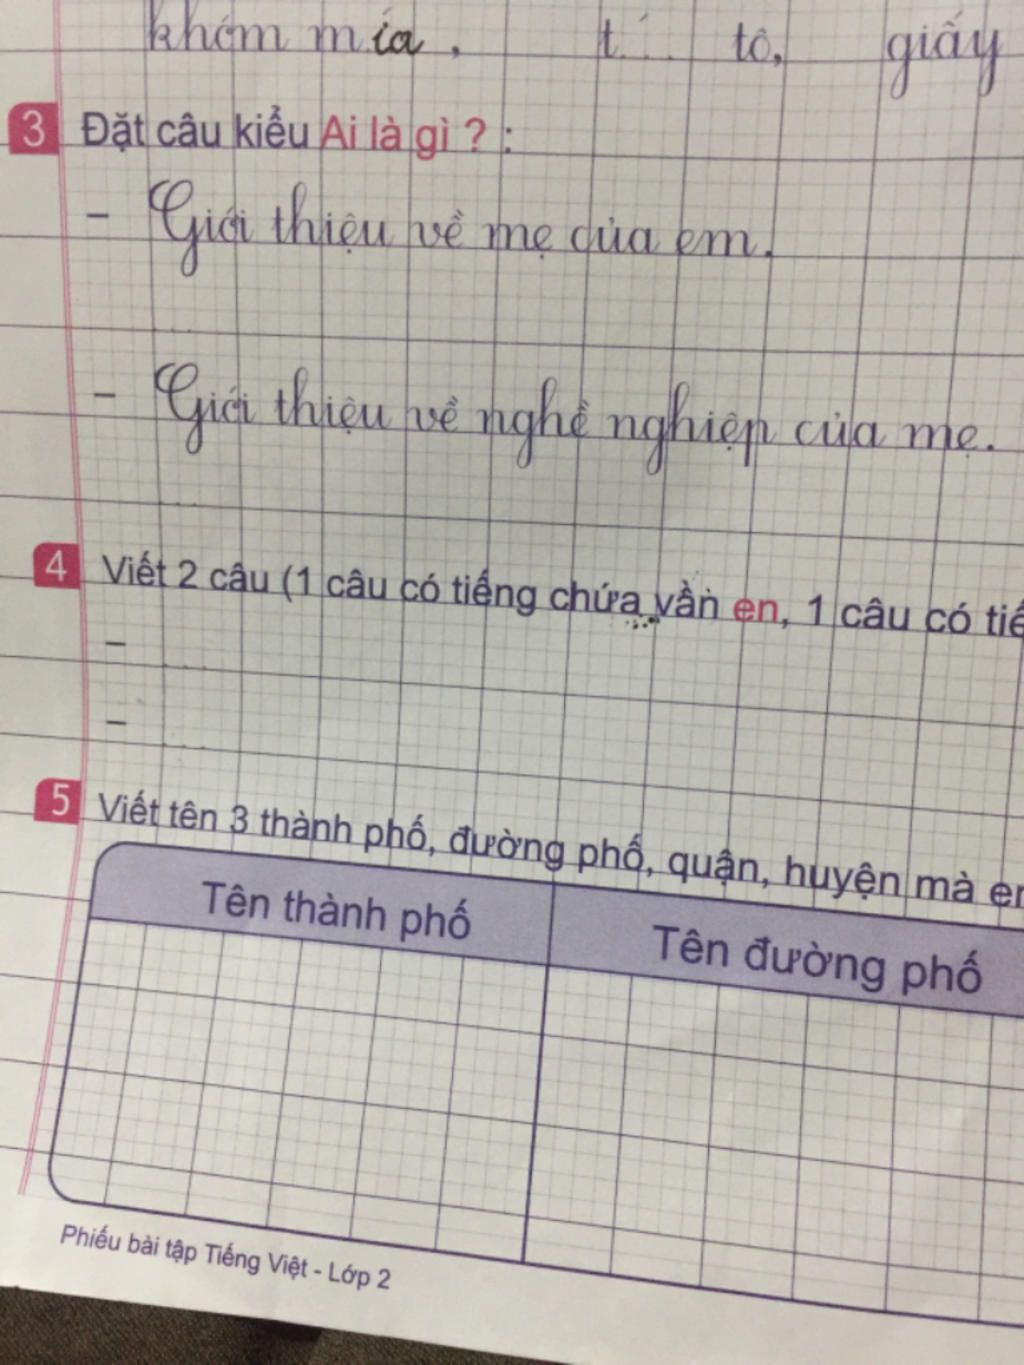 khóm mía, t... tô, giấy
3 Đặt câu kiểu Ai là gì ? :
- Giới thiệu về mẹ của em.
- Giới thiệu về nghề nghiệp của mẹ.
4 Viết 2 câu (1 câu có tiếng chứa vần en, 1 câu có
-
-
5 Viết tên 3 thành phố, đường phố, quận, huyện mà
Tên thành phố
Tên đường phố
Phiếu bài tập Tiếng Việt - Lớp 2